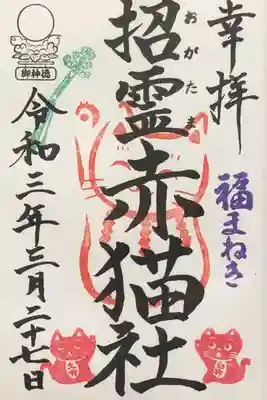 幸拝
福まねき
おがたま
招霊赤猫社
御神徳
令和三年三月二十七日